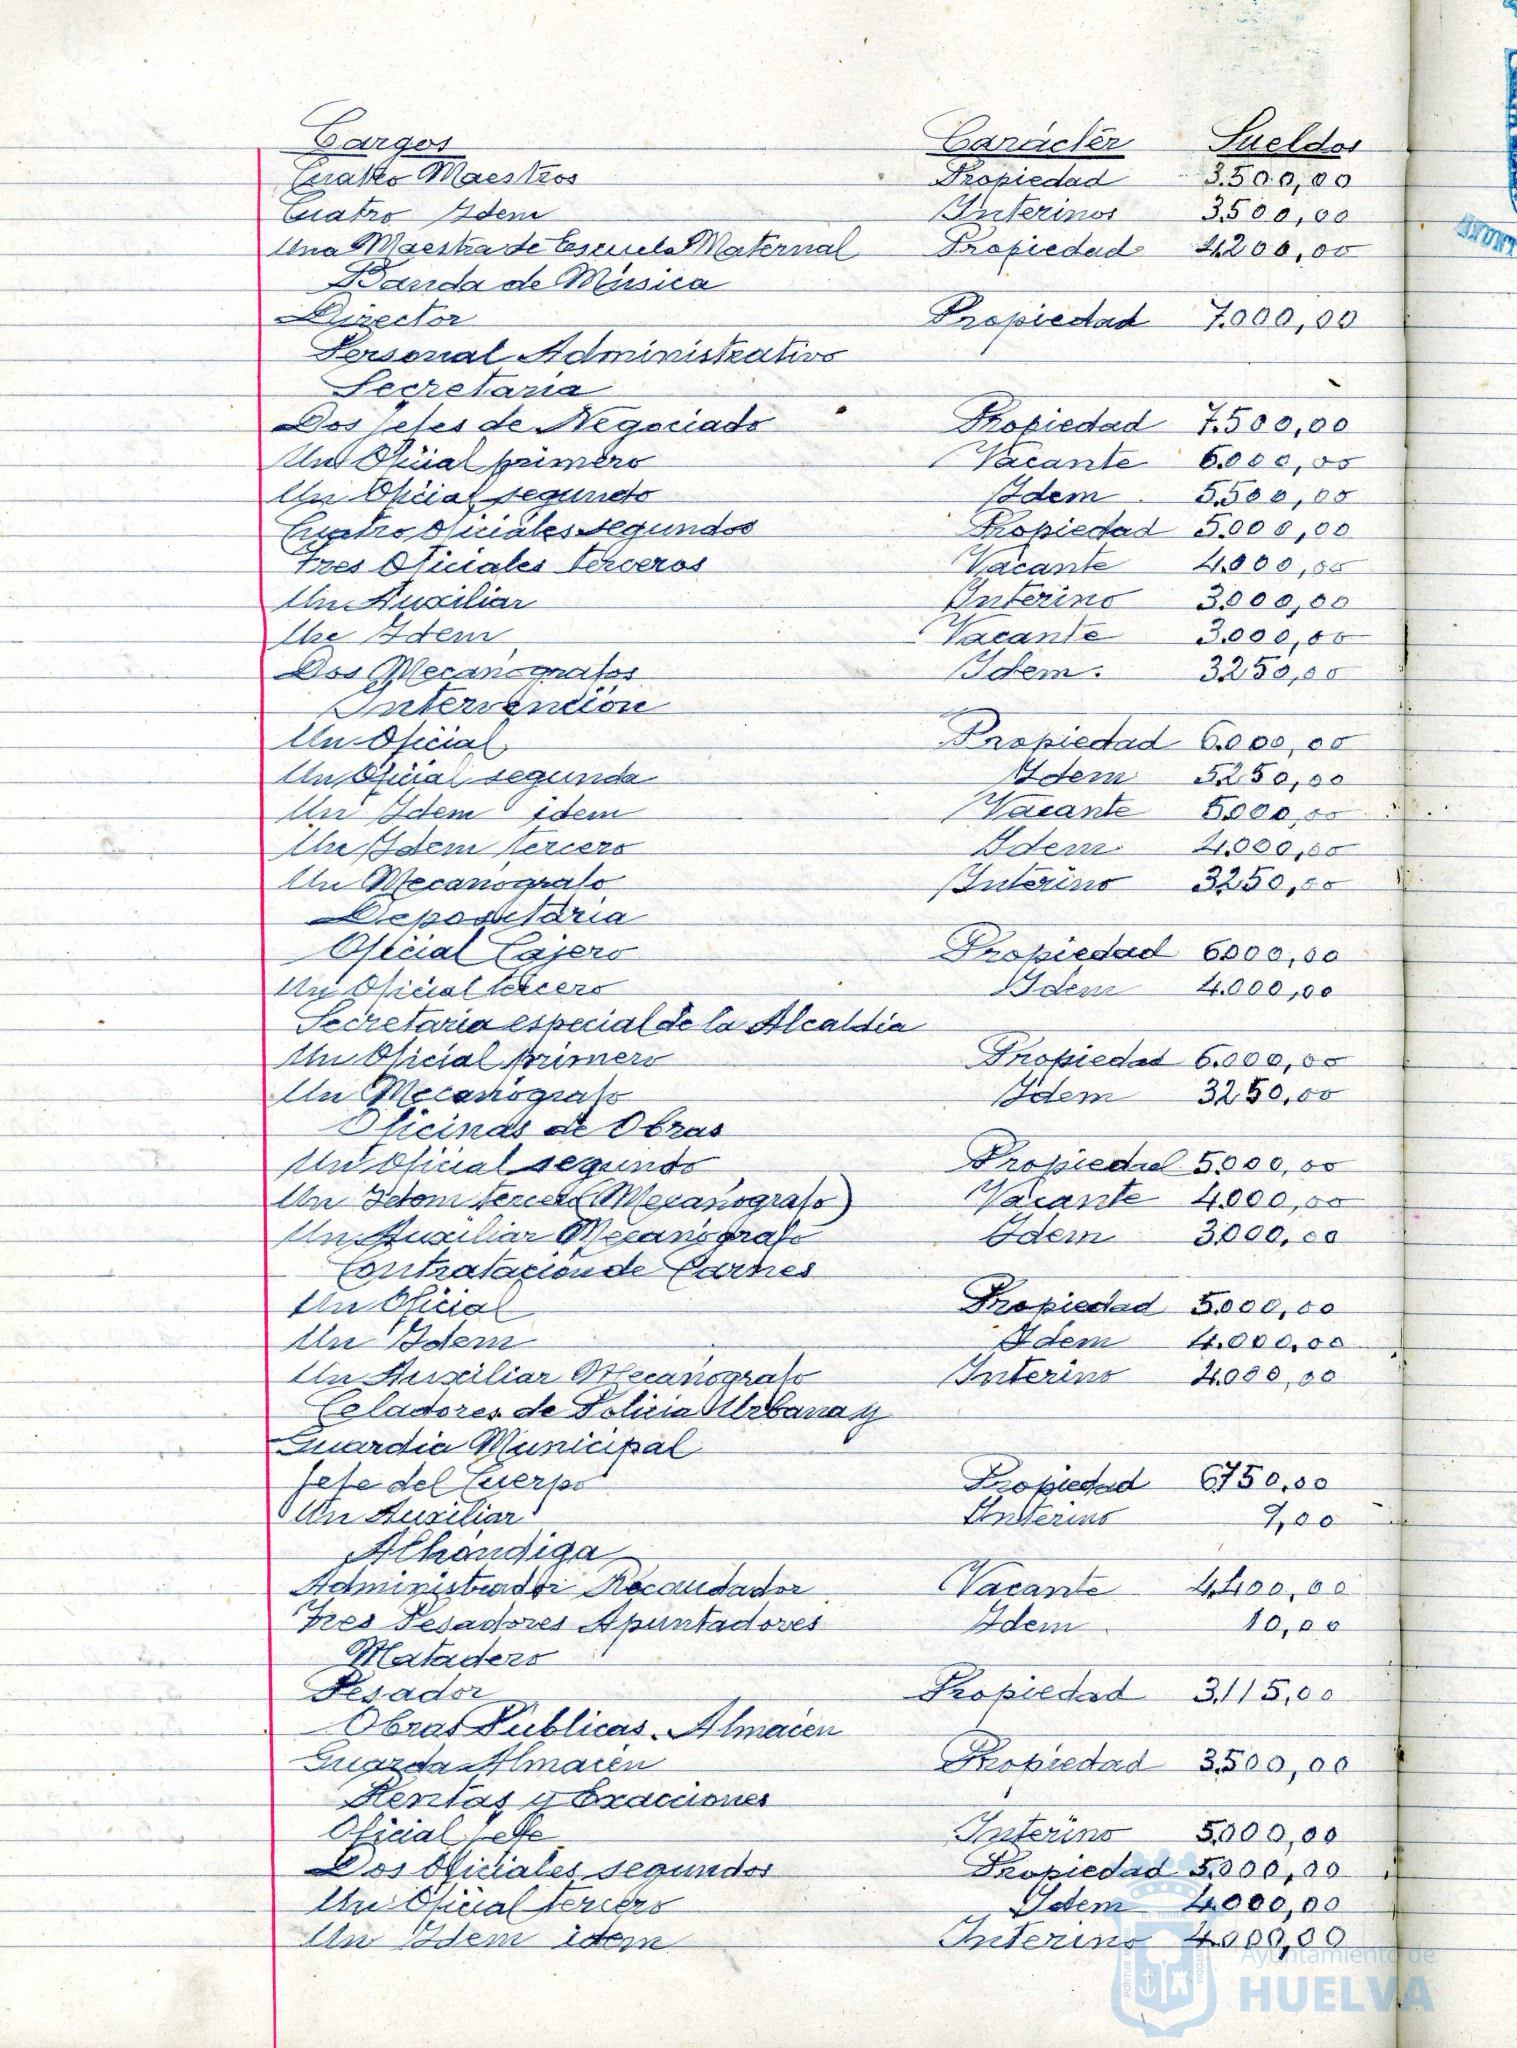 Cargos Carácter Sueldos
Cuatro Maestros Propiedad 3.500,00
Cuatro Idem Interinos 3.500,00
Una Maestra de Escuela Maternal Propiedad 4.200,00
Banda de Música
Director Propiedad 7.000,00
Personal Administrativo
Secretaría
Dos Jefes de Negociado Propiedad 7.500,00
Un Oficial primero Vacante 6.000,00
Un Oficial segundo Idem 5.500,00
Cuatro Oficiales segundos Propiedad 5.000,00
Tres Oficiales terceros Vacante 4.000,00
Un Auxiliar Interino 3.000,00
Un Idem Vacante 3.000,00
Dos Mecanógrafos Idem. 3.250,00
Intervención
Un Oficial Propiedad 6.000,00
Un Oficial segunda Idem 5.250,00
Un Idem idem Vacante 5.000,00
Un Idem tercero Idem 4.000,00
Un Mecanógrafo Interino 3.250,00
Depositaria
Oficial Cajero Propiedad 6.000,00
Un Oficial tercero Idem 4.000,00
Secretaria especial de la Alcaldía
Un Oficial primero Propiedad 6.000,00
Un Mecanógrafo Idem 3.250,00
Oficinas de Obras
Un Oficial segundo Propiedad 5.000,00
Un Idem tercero (Mecanógrafo) Vacante 4.000,00
Un Auxiliar Mecanógrafo Idem 3.000,00
Contratación de Carnes
Un Oficial Propiedad 5.000,00
Un Idem Idem 4.000,00
Un Auxiliar Mecanógrafo Interino 4.000,00
Celadores de Policía Urbana y
Guardia Municipal
Jefe del Cuerpo Propiedad 6.750,00
Un Auxiliar Interino 9,00
Alhóndiga
Administrador Recaudador Vacante 4.400,00
Tres Pesadores Apuntadores Idem 10,00
Matadero
Pesador Propiedad 3.115,00
Obras Públicas. Almacén
Guarda Almacén Propiedad 3.500,00
Rentas y Exacciones
Oficial Jefe Interino 5.000,00
Dos Oficiales segundos Propiedad 5.000,00
Un Oficial tercero Idem 4.000,00
Un Idem idem Interino 4.000,00
Ayuntamiento de
HUELVA